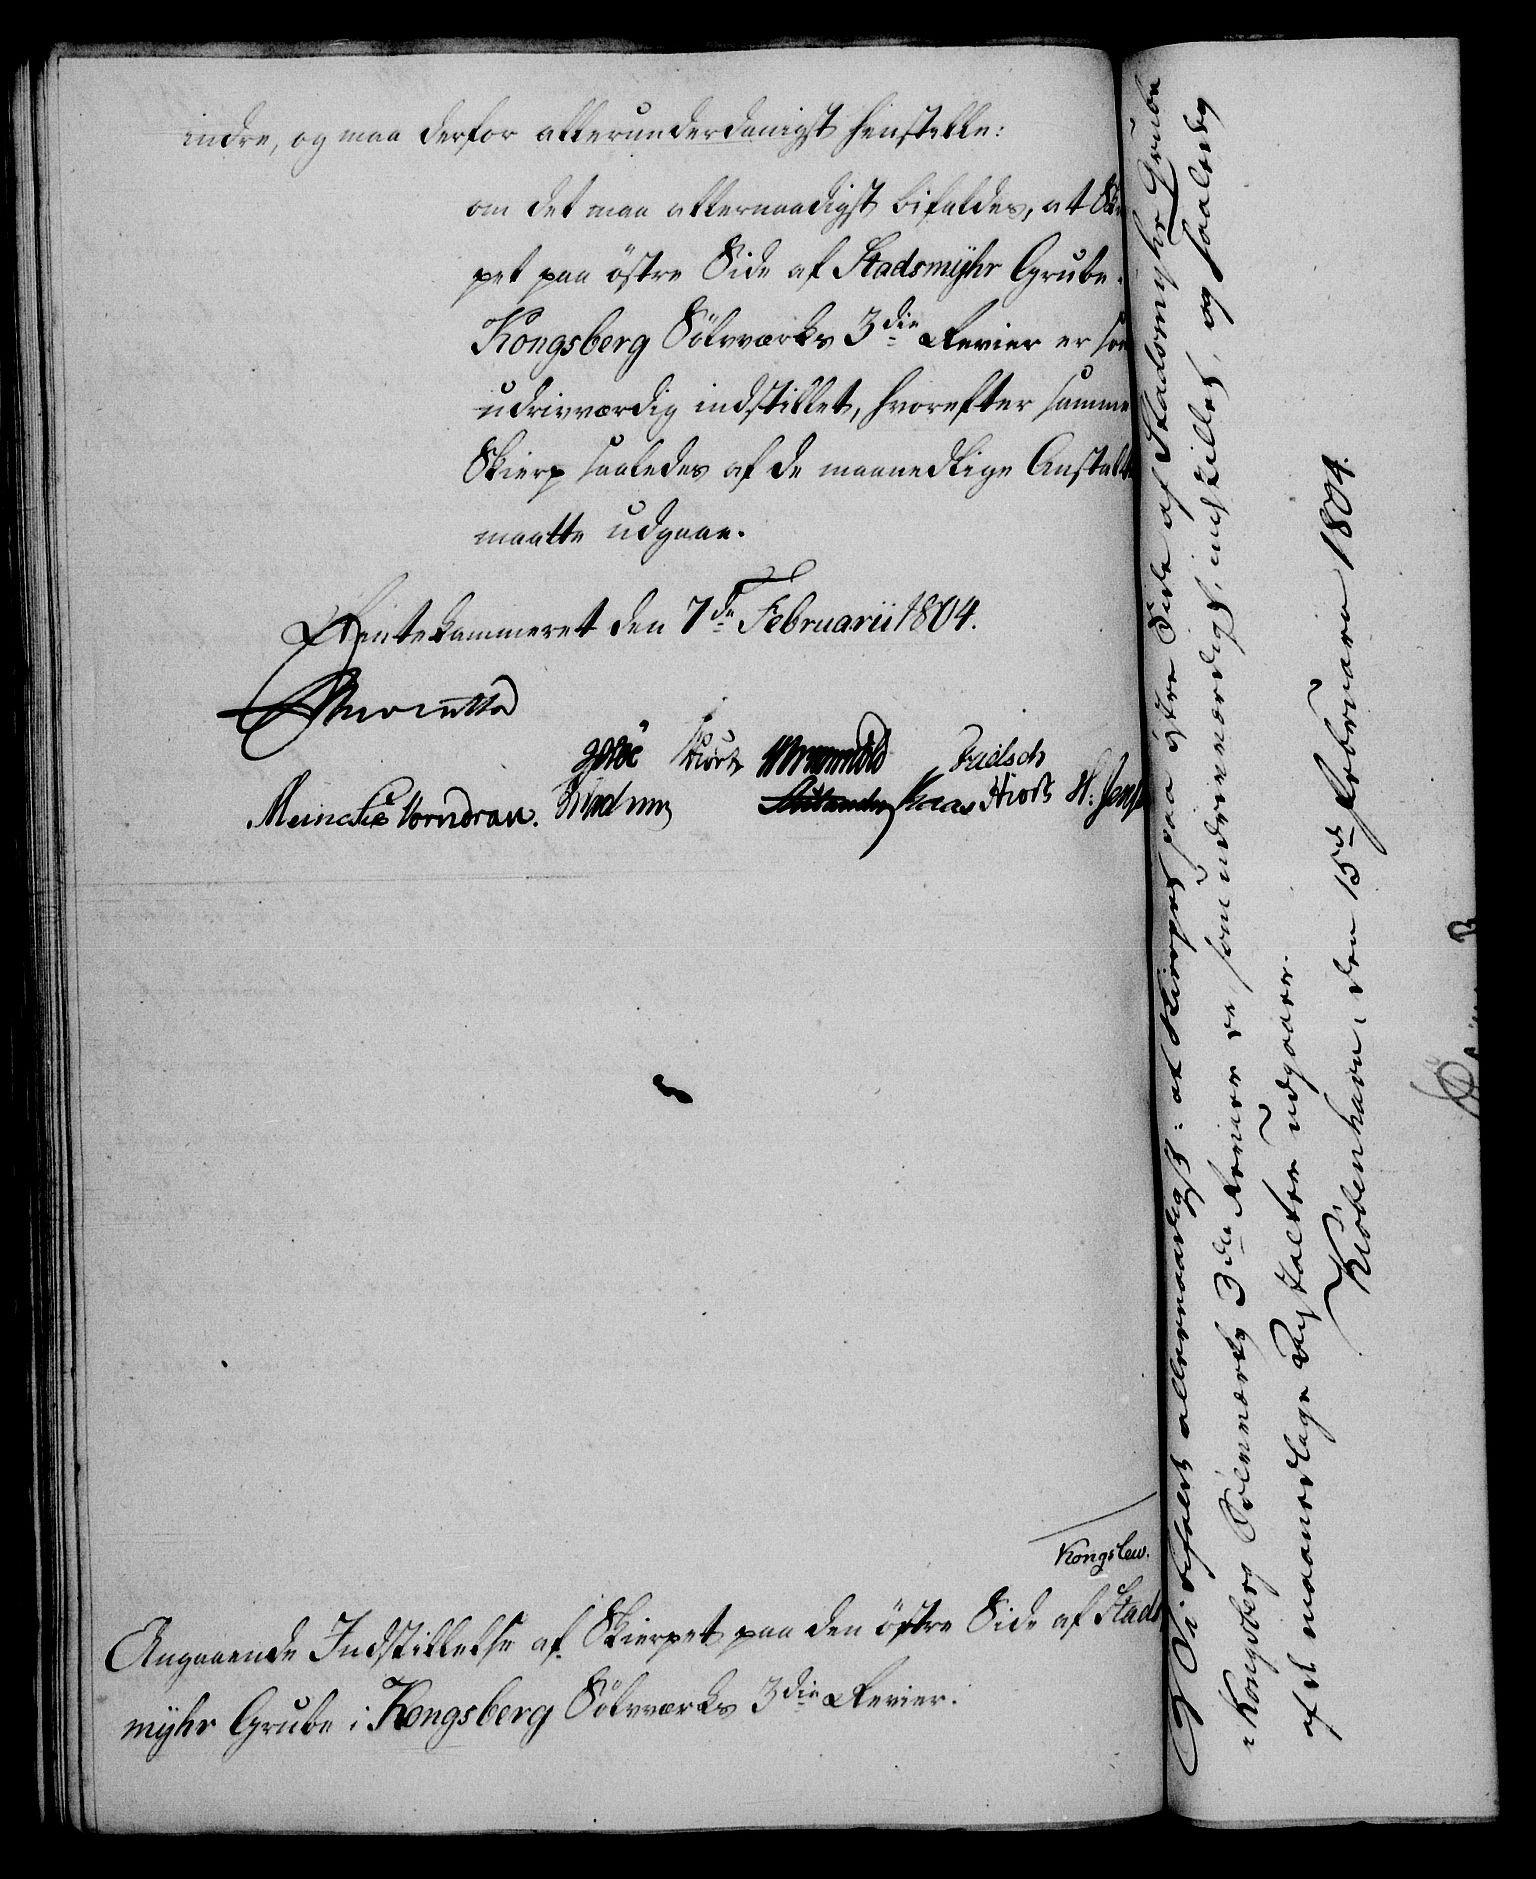 indre, og maa derfor allerunderdanigst henstille:
om det maa allernaadigst bifaldes, at Skier
pet paa østre Side af Stadsmyhr Grube i
Kongsberg Sølvværks 3die Revier er som
udrivværdig indstillet, hvorefter samme
Skierp saaledes af de maanedlige Anstalter
maatte udgaae.
Rentekammeret den 7de Februarii 1804.
Meincke Vorndran. Knas Hiort H: Jens
Kongslew.
Angaaende Indstillelse af Skierpet paa den østre Side af Stads
myhr Grube i Kongsberg Sølvværks 3die Revier.
Vi bifalde allernaadigst: at Skierpet paa østre Side af Stadsmyhr Grube
i Kongsberg Sølvværks 3die Revier er som udrivværdigt indstillet, og saaledes
af de maanedlige Anstalter udgaaer.
Kiøbenhavn, den 15de Februarii 1804.